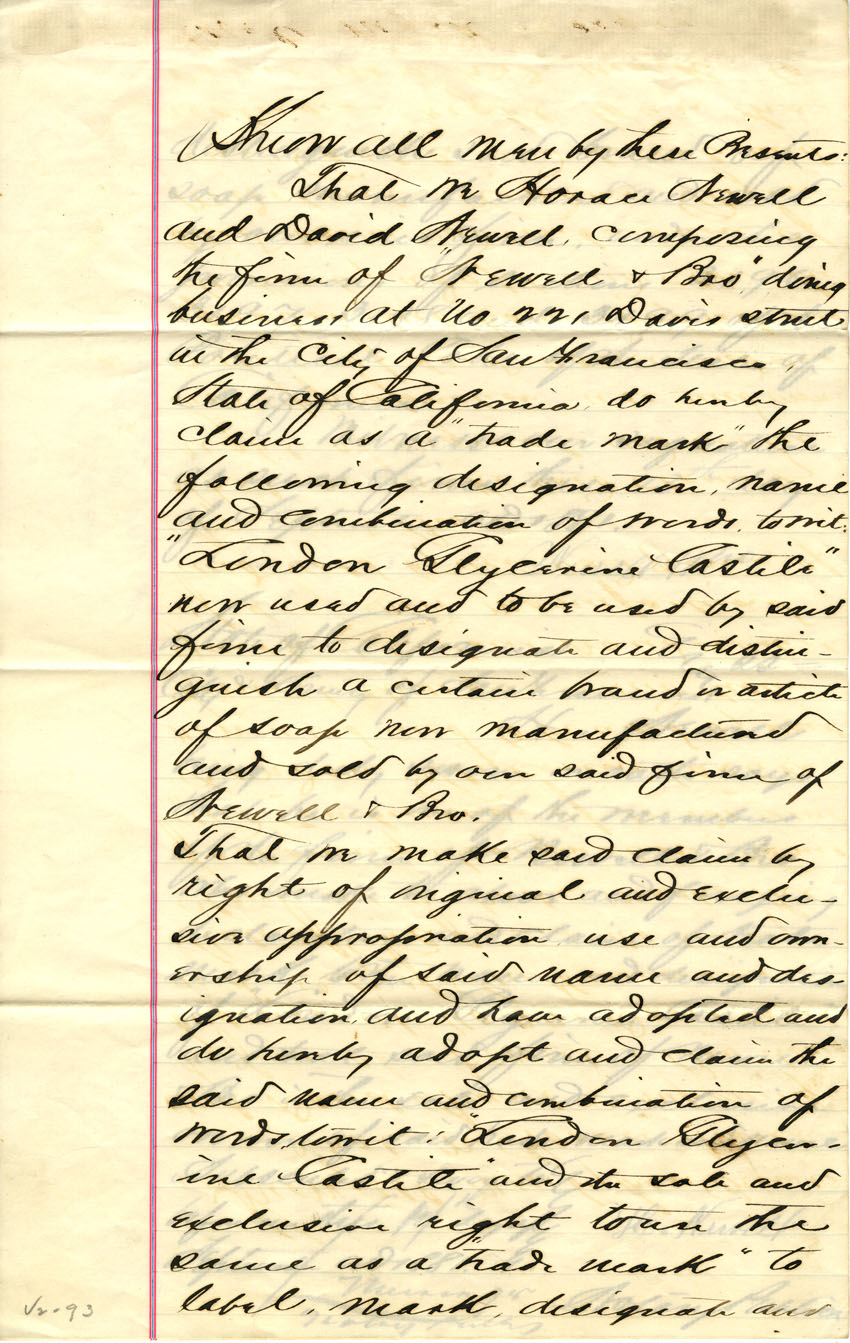 Know all men by these Presents:
That we Horace Newell
and David Newell, composing
the firm of "Newell & Bro", doing
business at No 221 Davis street
in the City of San Francisco,
State of California, do hereby
claim as a "trade mark" the
following designation, name
and combination of words, towit:
"London Glycerine Castile"
now used and to be used by said
firm to designate and distin-
guish a certain brand or article
of soap now manufactured
and sold by our said firm of
Newell & Bro.
That we make said claim by
right of original and exclu-
sive appropriation, use and own-
ership of said name and des-
ignation, and have adopted and
do hereby adopt and claim the
said name and combination of
words, towit: "London Glycer-
ine Castile" and the sole and
exclusive right to use the
same as a "trade mark" to
label, mark, designate and
V2-93